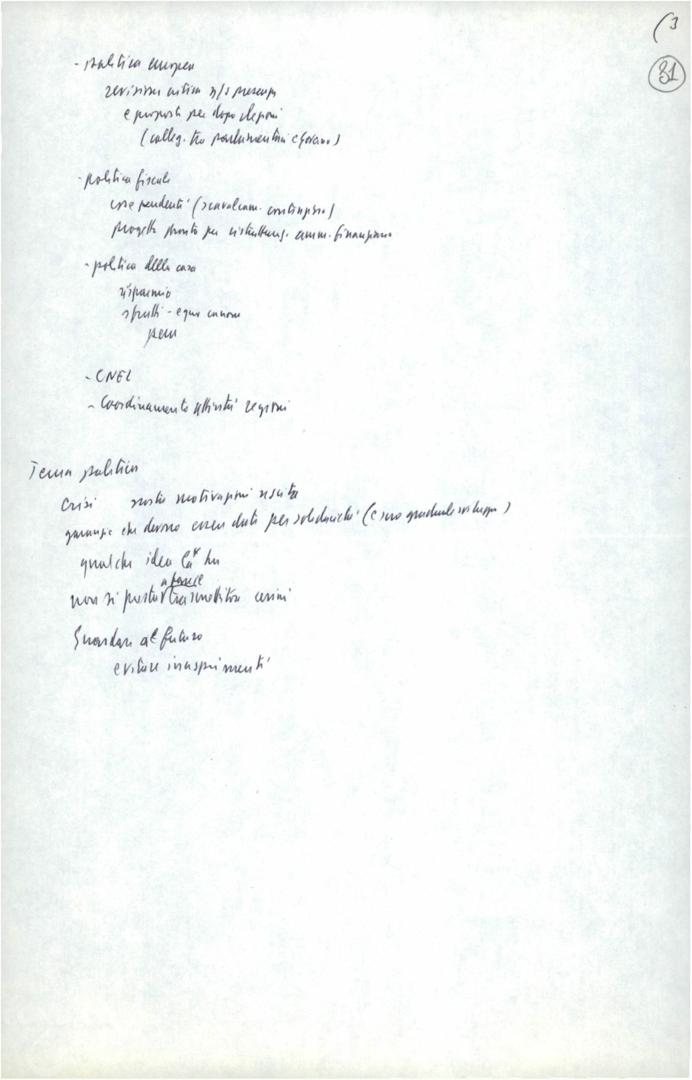 (3
31
- politica europea
revisione critica n/s presenza
e proposte per dopo elezioni
(colleg. tra parlamentari e governo)
- politica fiscale
cose pendenti (scavalcam. contenzioso)
progetto pronto per ristrutturaz. amm. finanziaria
- politica della casa
risparmio
sfratti - equo canone
- CNEL
- Coordinamento attività regioni
Tema politico
Crisi nostre motivazioni uscita
garanzie che devono essere date per solidarietà (e suo graduale sviluppo)
qualche idea la ha
non si può trasmettere
Guardare al futuro
evitare inasprimenti